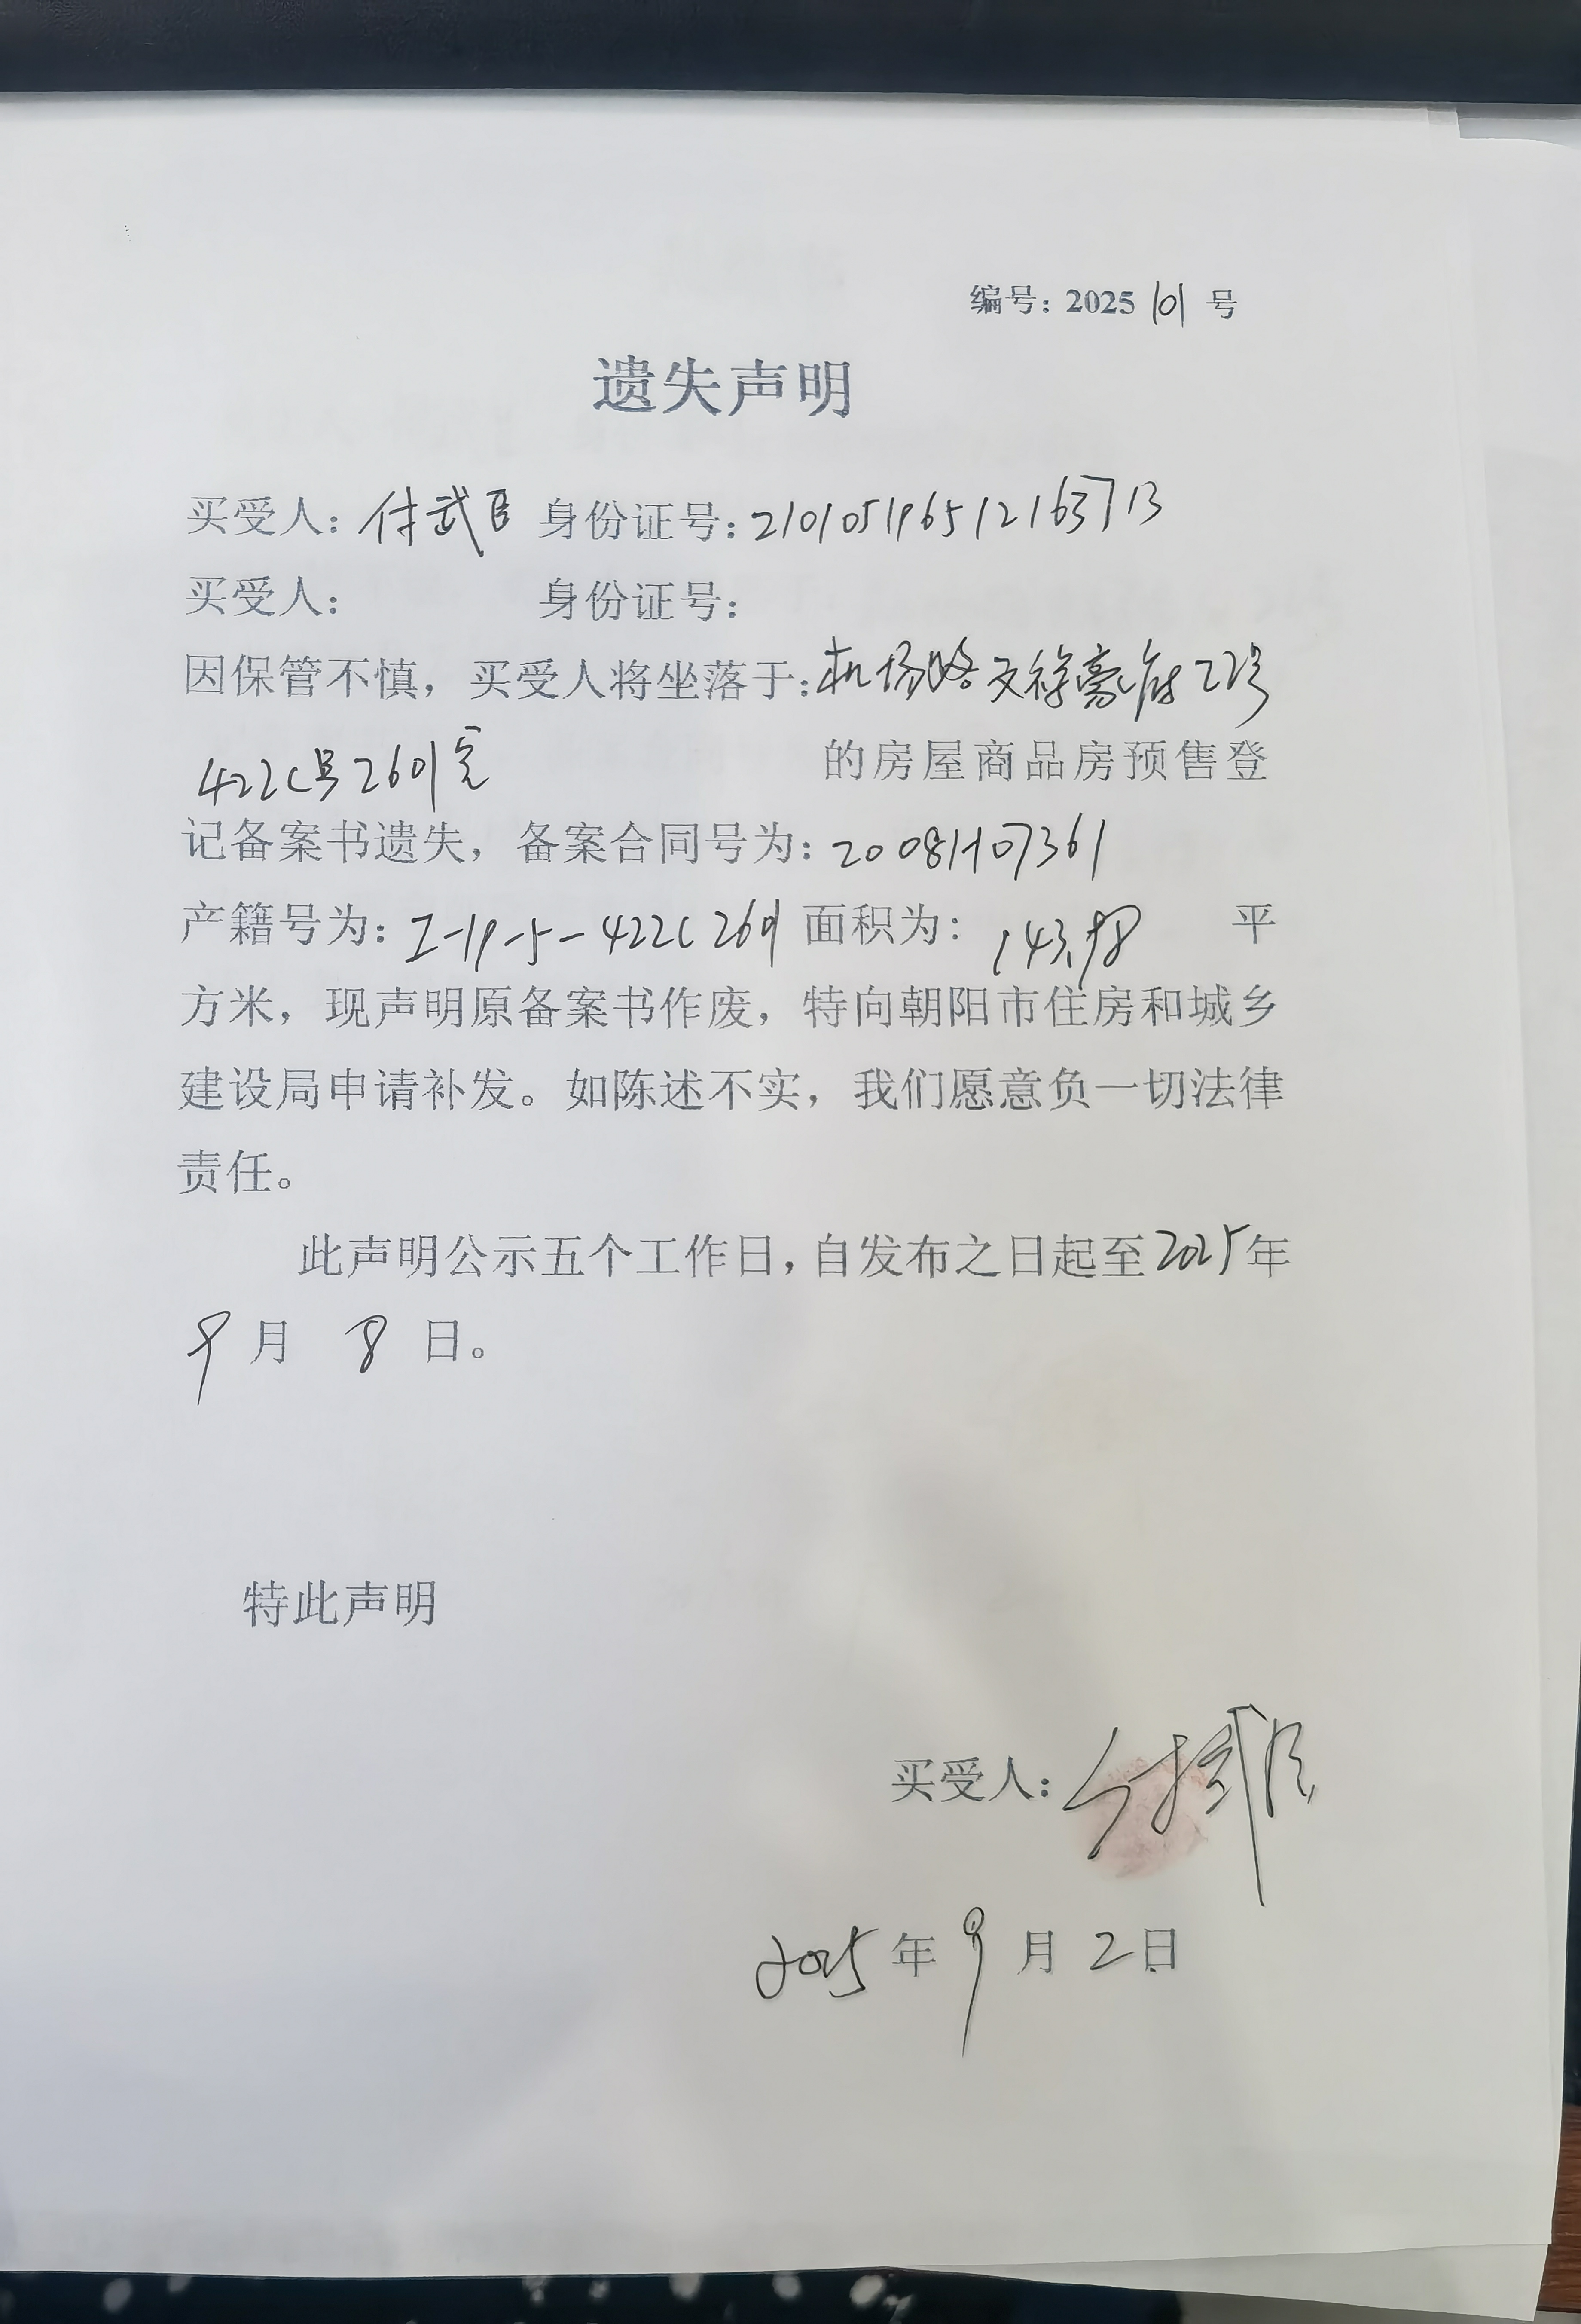 编号：2025 101 号
遗失声明
买受人：付武臣 身份证号：210105196512163713
买受人： 身份证号：
因保管不慎，买受人将坐落于：机场路文禄豪府22号
422C号2601室 的房屋商品房预售登
记备案书遗失，备案合同号为：20081107361
产籍号为：I-19-5-422C2601 面积为：143.98 平
方米，现声明原备案书作废，特向朝阳市住房和城乡
建设局申请补发。如陈述不实，我们愿意负一切法律
责任。
此声明公示五个工作日，自发布之日起至2025年
9月 8 日。
特此声明
买受人：付武臣
2025年9月2日